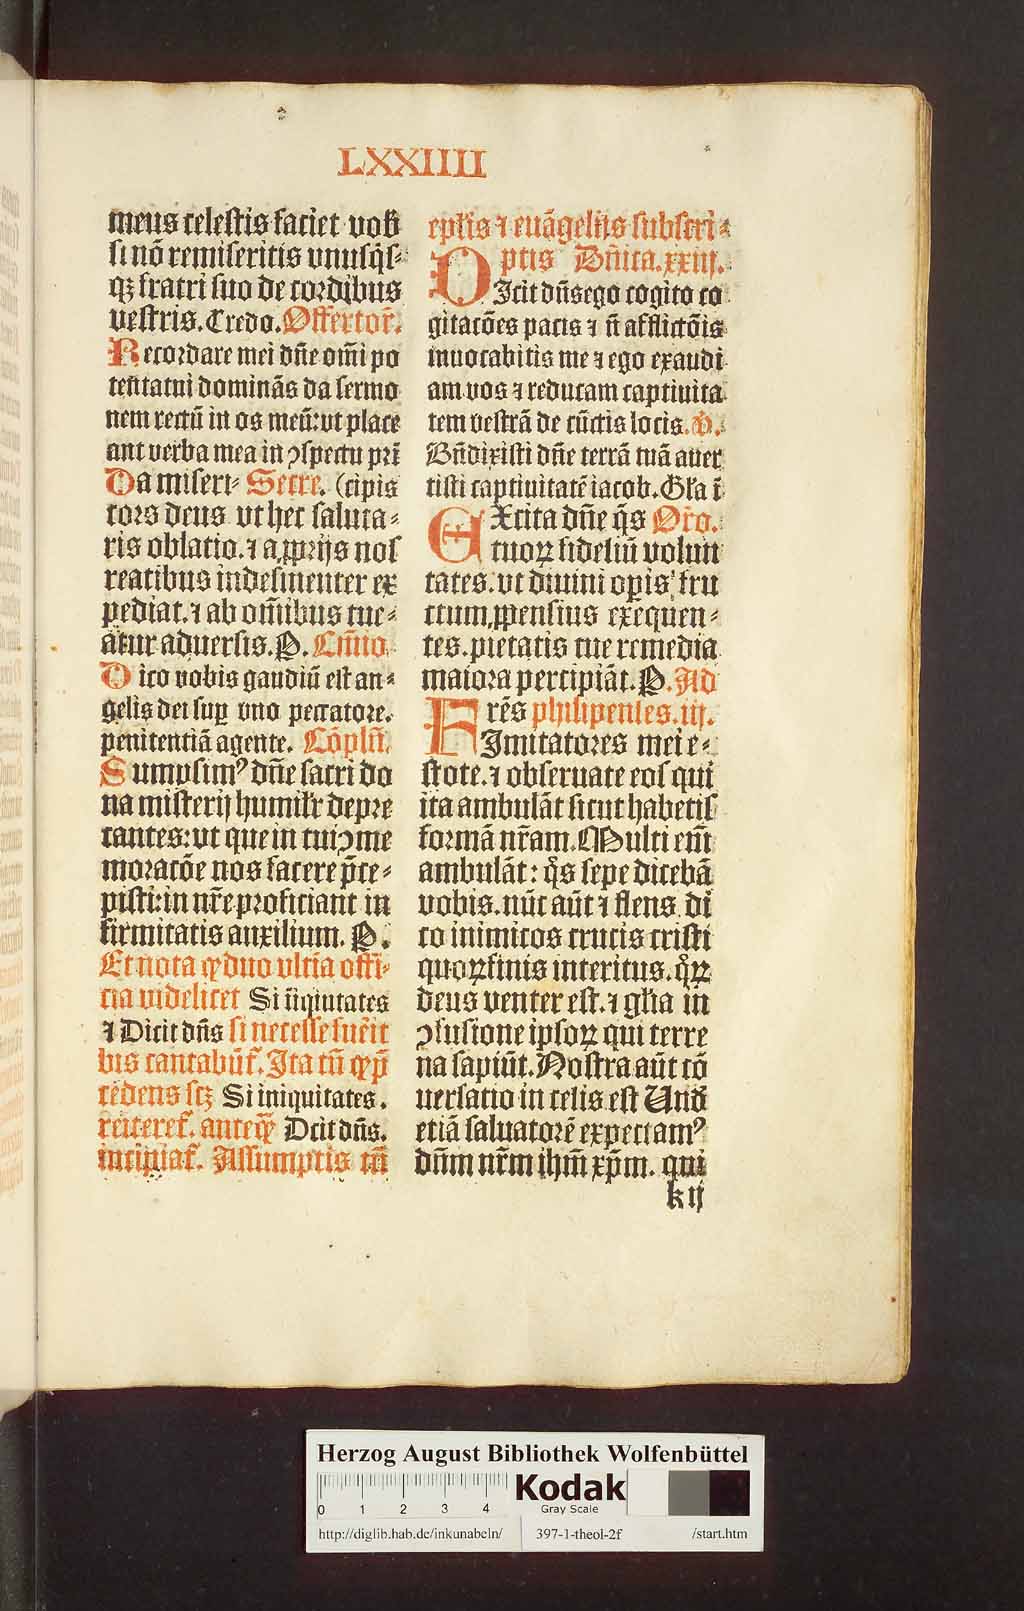 LXXIIII
meus celestis faciet vob
si nō remiseritis vnusq̇s⸗
qꝫ fratri suo de cordibus
vestris. Credo. Offertoꝛ̄.
Recordare mei dn̄e om̄i po
tentatui dominās da sermo
nem rectū in os meū: vt place
ant verba mea in ꝯspectu pri̅
Da miseri⸗ Secre. (cipis
cors deus vt hec saluta⸗
ris oblatio. ⁊ a ꝓprijs nos
reatibus indesinenter ex
pediat. ⁊ ab om̄ibus tue⸗
atur aduersis. P. Cm̄io
Dico vobis gaudiū est an⸗
gelis dei suꝑ vno peccatore.
penitentiā agente. Cōpln̄.
Sumpsimꝰ dn̄e sacri do
na misterij humilr̄ depre
cantes: vt que in tui ꝯme
moracōe nos facere p̄ce⸗
pisti: in nr̄e proficiant in
firmitatis auxilium. P.
Et nota ꝙ duo vltīa offi⸗
cia videlicet Si īiqiutates
⁊ Dicit dn̄s si necesse fuēit
bis cantabūt̄. Ita tn̄ ꝙ p̄
cēdens scꝫ Si iniquitates.
reiteret̄. anteꝙ̄ Dcit dn̄s.
incipiat̄. Assumptis tn̄
epl̄is ⁊ euāgelijs subscri⸗
ptis Dn̄ica. xxiij.
DIcit dn̄s ego cogito co
gitacōes pacis ⁊ n̄ afflictōis
inuocabitis me ⁊ ego exaudi
am vos ⁊ reducam captiuita
tem vestrā de cūctis locis. v̇.
Bn̄dixisti dn̄e terrā tuā auer
tisti captiuitatē iacob. Gl̄a ī
EXcita dn̄e q̄s Or̄o.
tuoꝝ fideliū volun
tates. vt diuini oꝑis fru
ctum, ꝓpensius exequen⸗
tes. pietatis tue remedia
maiora percipiāt. P. Ad
FRēs philipenses. iij.
Imitatores mei e⸗
stote. ⁊ obseruate eos qui
ita ambulāt sicut habetis
formā nr̄am. Multi enī
ambulāt: q̊s sepe dicebā
vobis. nūc aūt ⁊ flens di
co inimicos crucis cristi
quoꝝ finis interitus. q̊ꝝ
deus venter est. ⁊ gl̄ia in
ꝯfusione ipsoꝝ qui terre
na sapiūt. Nostra aūt cō
uersatio in celis est Vnd̄
etiā saluatorē expectamꝰ
dn̄m nr̄m ihm̄ xp̄m. qui
k ij
Herzog August Bibliothek Wolfenbüttel
0 1 2 3 4 Kodak
Gray Scale
http://diglib.hab.de/inkunabeln/ 397-1-theol-2f /start.htm